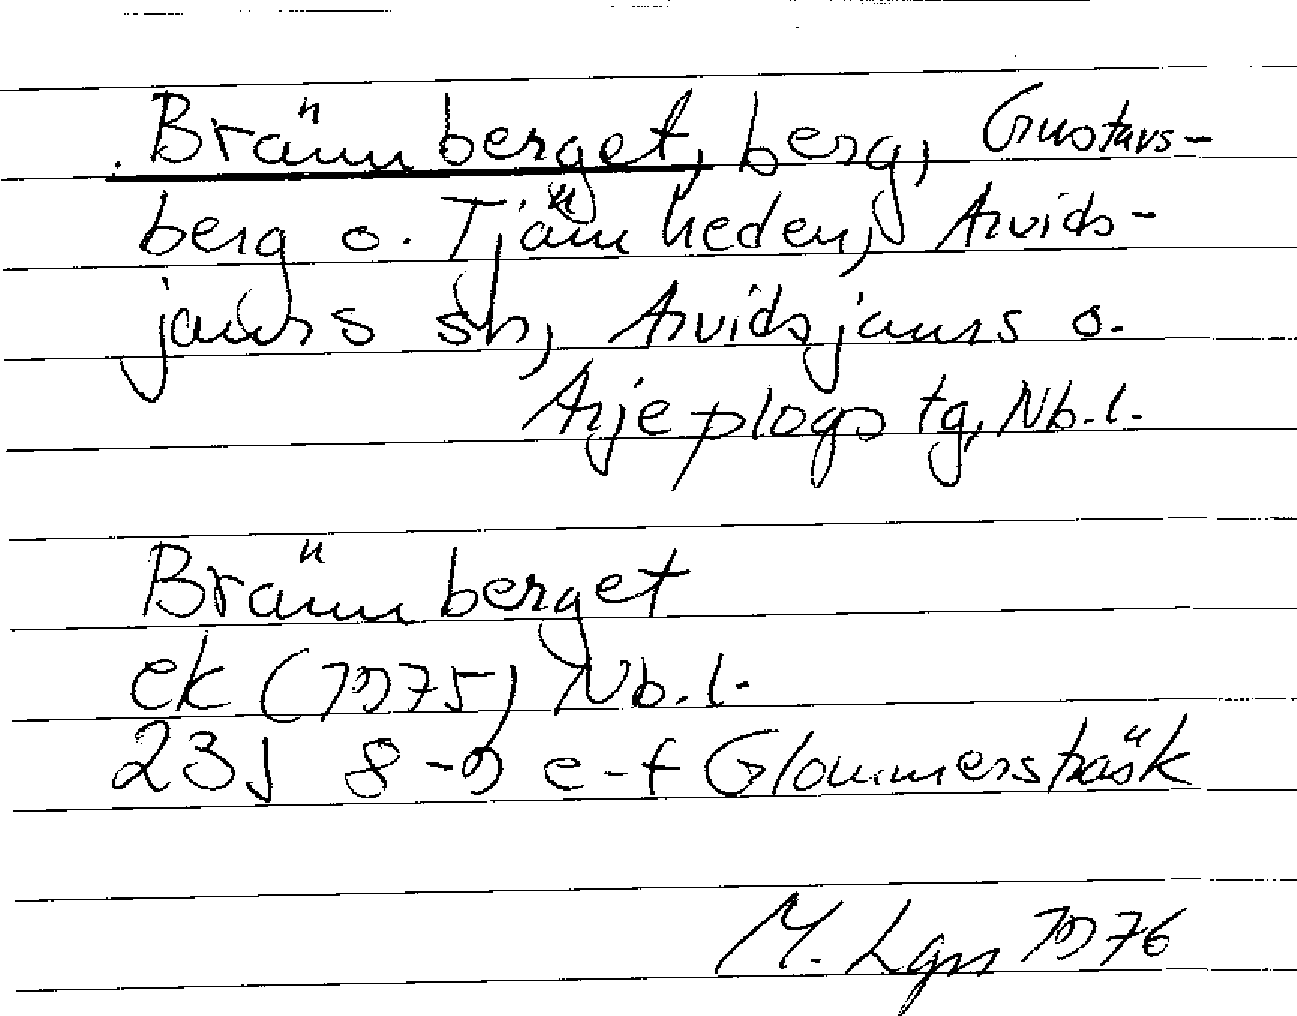 Brännberget, berg, Gustavs-
berg o. Tjärnheden, Arvids-
jaurs sn, Arvidsjaurs o.
Arjeplogs tg, Nb. l.
Brännberget
ek (1975) Nb. l.
23J 8-9 e-f Glommersträsk
M. Lgn 1976